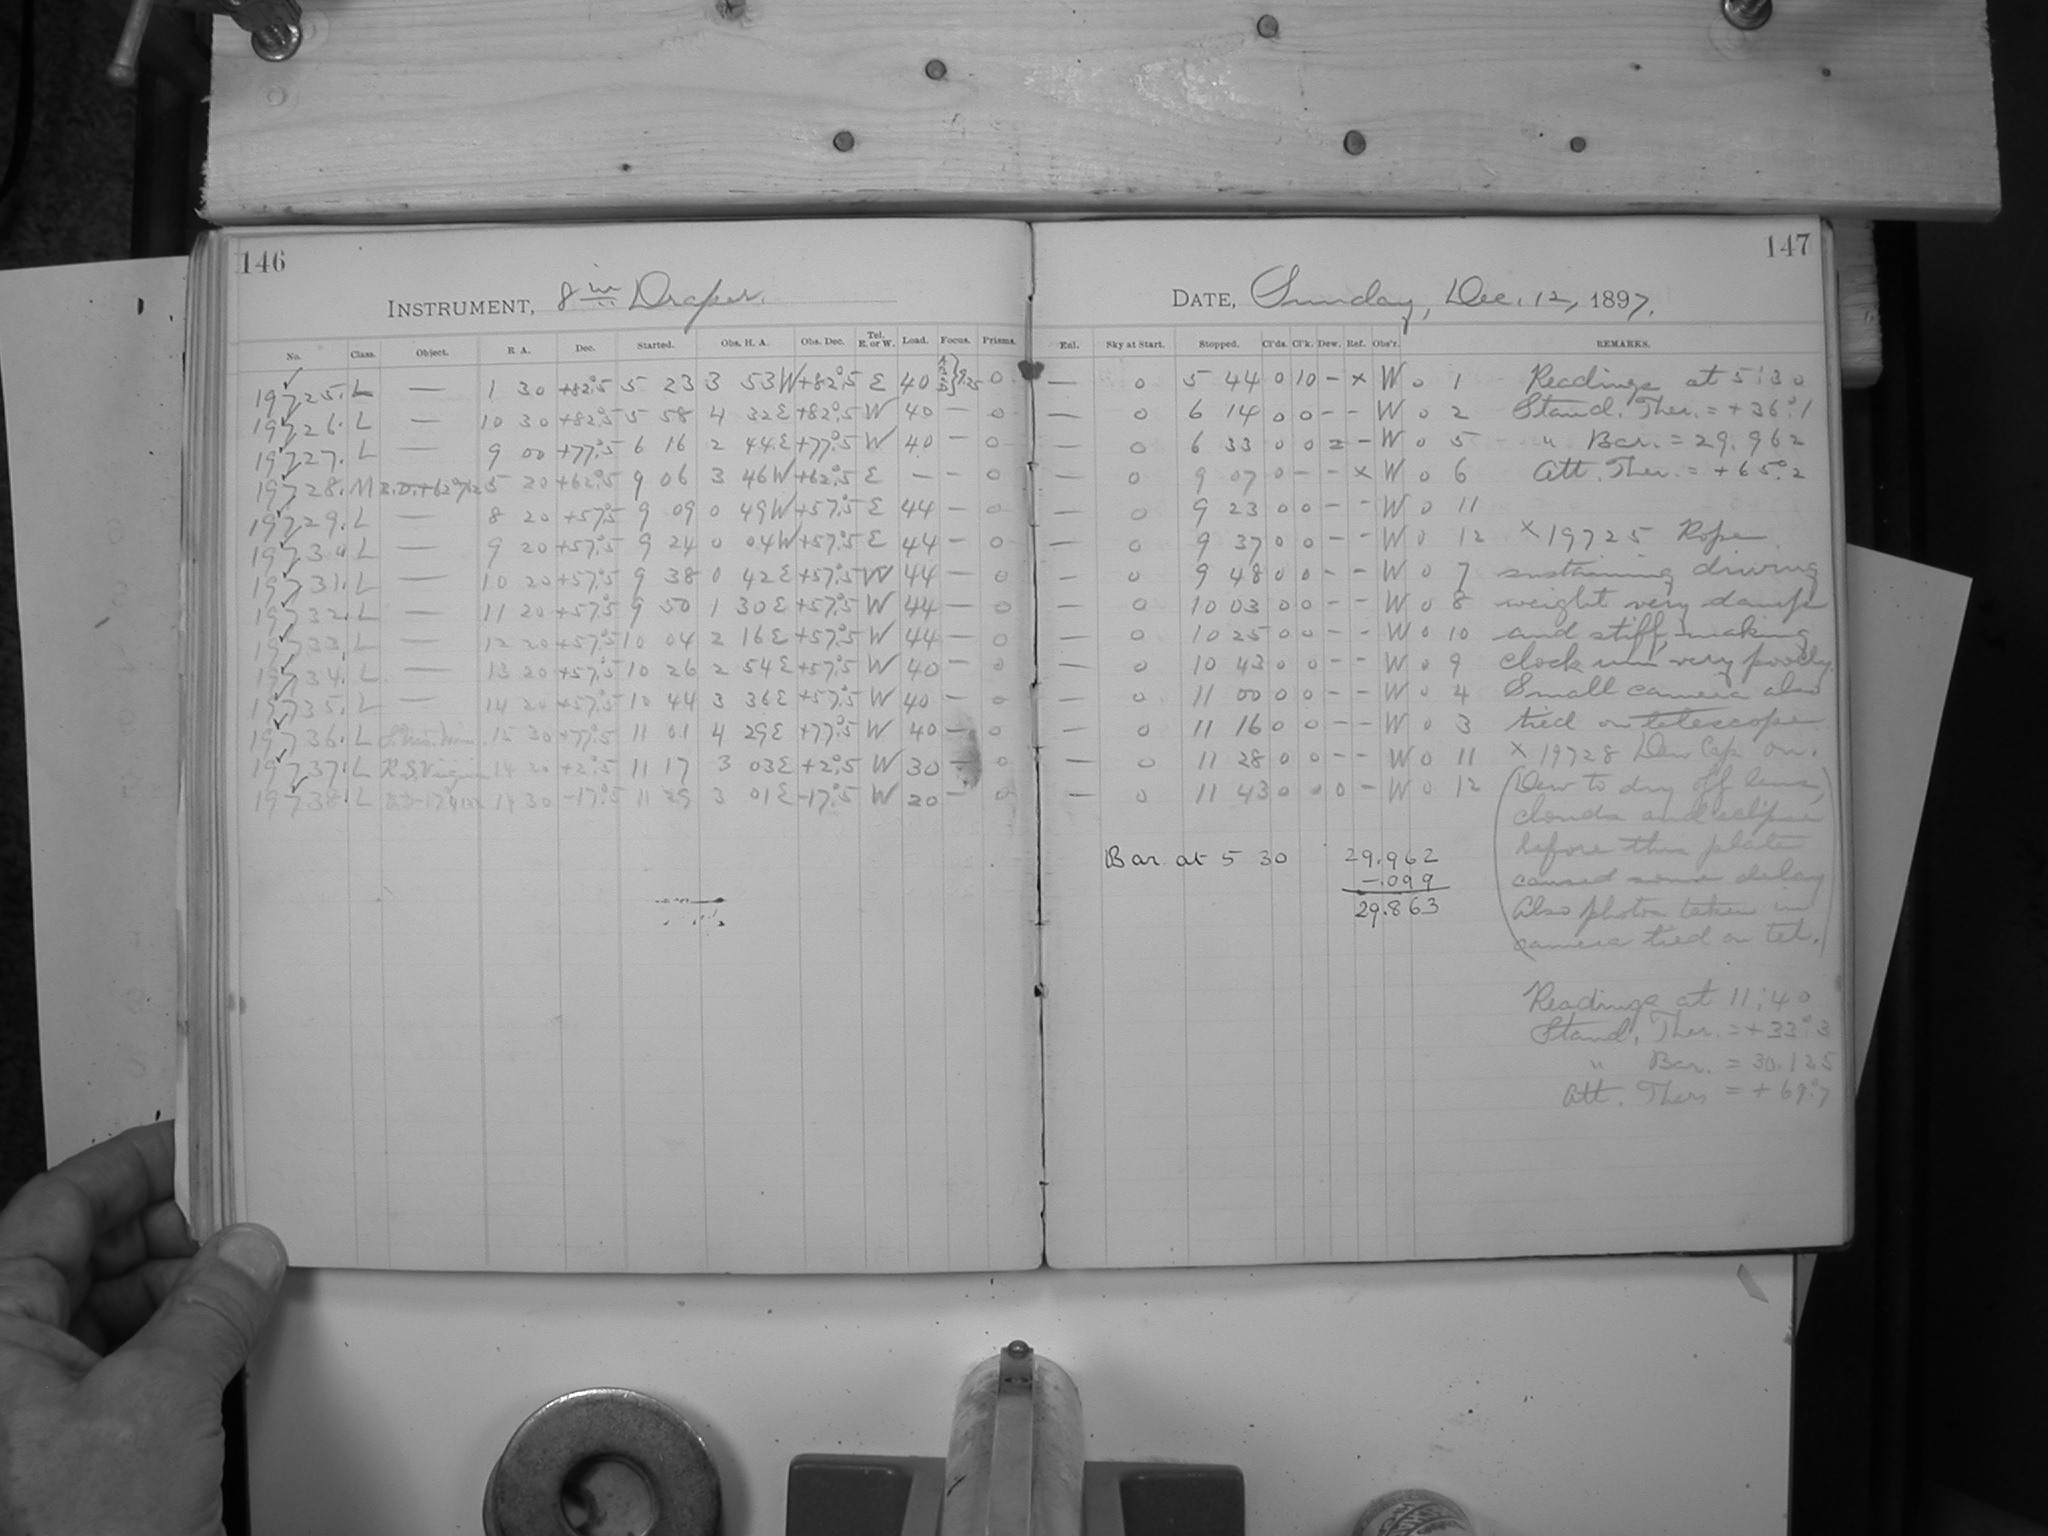 146
INSTRUMENT, 8 in Draper.
No. Class. Object. R. A. Dec. Started. Obs. H. A. Obs. Dec. Tel. E. or W. Load. Focus. Prisms.
19725. L — 1 30 +82°.5 5 23 3 53W +82°.5 E 40 9.25 0
19726. L — 10 30 +82°.5 5 58 4 32E +82°.5 W 40 — 0
19727. L — 9 00 +77°.5 6 16 2 44E +77°.5 W 40 — 0
19728. M 5 20 +62°.5 9 06 3 46W +62°.5 E — — 0
19729. L — 8 20 +57°.5 9 09 0 49W +57°.5 E 44 — 0
19730. L — 9 20 +57°.5 9 24 0 04W +57°.5 E 44 — 0
19731. L — 10 20 +57°.5 9 38 0 42E +57°.5 W 44 — 0
19732. L — 11 20 +57°.5 9 50 1 30E +57°.5 W 44 — 0
19733. L — 12 20 +57°.5 10 04 2 16E +57°.5 W 44 — 0
19734. L — 13 20 +57°.5 10 26 2 54E +57°.5 W 40 — 0
19735. L — 14 20 +57°.5 10 44 3 36E +57°.5 W 40 — 0
19736. L 15 30 +77°.5 11 01 4 29E +77°.5 W 40 — 0
19737. L R.S. Virginis 14 20 +2°.5 11 17 3 03E +2°.5 W 30 — 0
19738. L 14 30 -17°.5 11 29 3 01E -17°.5 W 20 — 0
147
DATE, Sunday, Dec. 12, 1897.
Enl. Sky at Start. Stopped. Cl'ds. Cl'k. Dew. Ref. Obs'r. REMARKS.
— 0 5 44 0 10 – x W 0 1 Readings at 5:30
— 0 6 14 0 0 – – W 0 2 Stand. Ther. = +36°.1
— 0 6 33 0 0 2 – W 0 5 " Bar. = 29.962
— 0 9 07 0 – – x W 0 6 Att. Ther. = +65°.2
— 0 9 23 0 0 – – W 0 11
— 0 9 37 0 0 – – W 0 12 x 19725 Rope
— 0 9 48 0 0 – – W 0 7 sustaining driving
— 0 10 03 0 0 – – W 0 8 weight very damp
— 0 10 25 0 0 – – W 0 10 and stiff, making
— 0 10 43 0 0 – – W 0 9 clock run very poorly.
— 0 11 00 0 0 – – W 0 4 Small camera also
— 0 11 16 0 0 – – W 0 3 tied on telescope
— 0 11 28 0 0 – – W 0 11 x 19728 Dew Cap on.
— 0 11 43 0 0 0 – W 0 12 (Dew to dry off lens,
clouds and eclipse
before this plate
caused some delay
Also photos taken in
camera tied on tel.)
Bar. at 5 30 29.962
-.099
29.863
Readings at 11:40
Stand. Ther. = +33°.3
" Bar. = 30.125
Att. Ther. = +69°.7